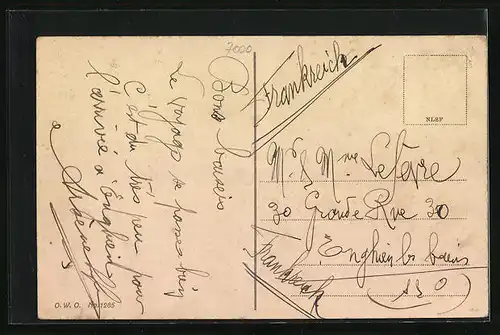 7000
Bons baisers
Le voyage se passe bien
C'est du très peu pour
l'arrivée à Enghien
Frankreich
NLBF
Mr & Mme Lefèvre
30 Grande Rue 30
Enghien les bains
(S O)
Frankreich
O. W. O. No. 1265